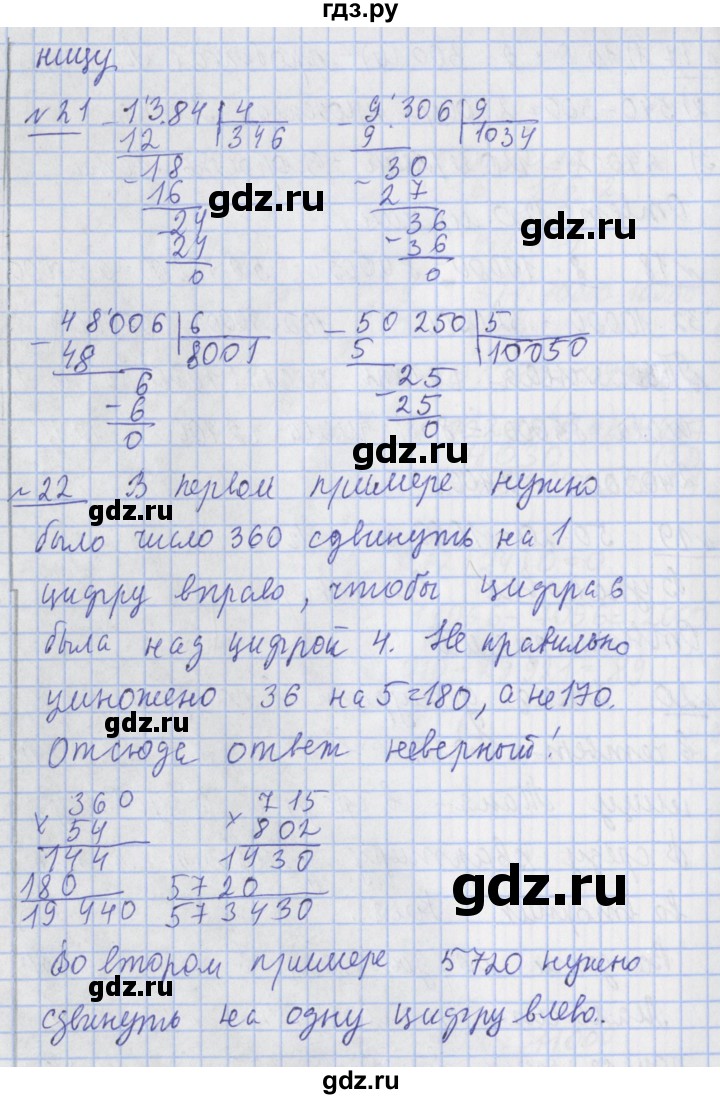 гдз.ру
ницу
№21 1384 | 4 9306 | 9
12 346 9 1034
18 30
16 27
24 36
24 36
0 0
gdz.ru gdz.ru
48006 | 6 50250 | 5
48 8001 5 10050
6 25
6 25
0 0
gdz.ru
№22 В первом примере нужно
gdz.ru
было число 360 сдвинуть на 1
цифру вправо, чтобы цифра 6
была над цифрой 4. Не правильно
умножено 36 на 5=180, а не 170.
gdz.ru
Отсюда ответ неверный!
360 715
× 54 × 802
144 1430
180 5720
19 440 573430
gdz.ru
Во втором примере 5720 нужно
gdz.ru
сдвинуть на одну цифру влево.
gdz.ru